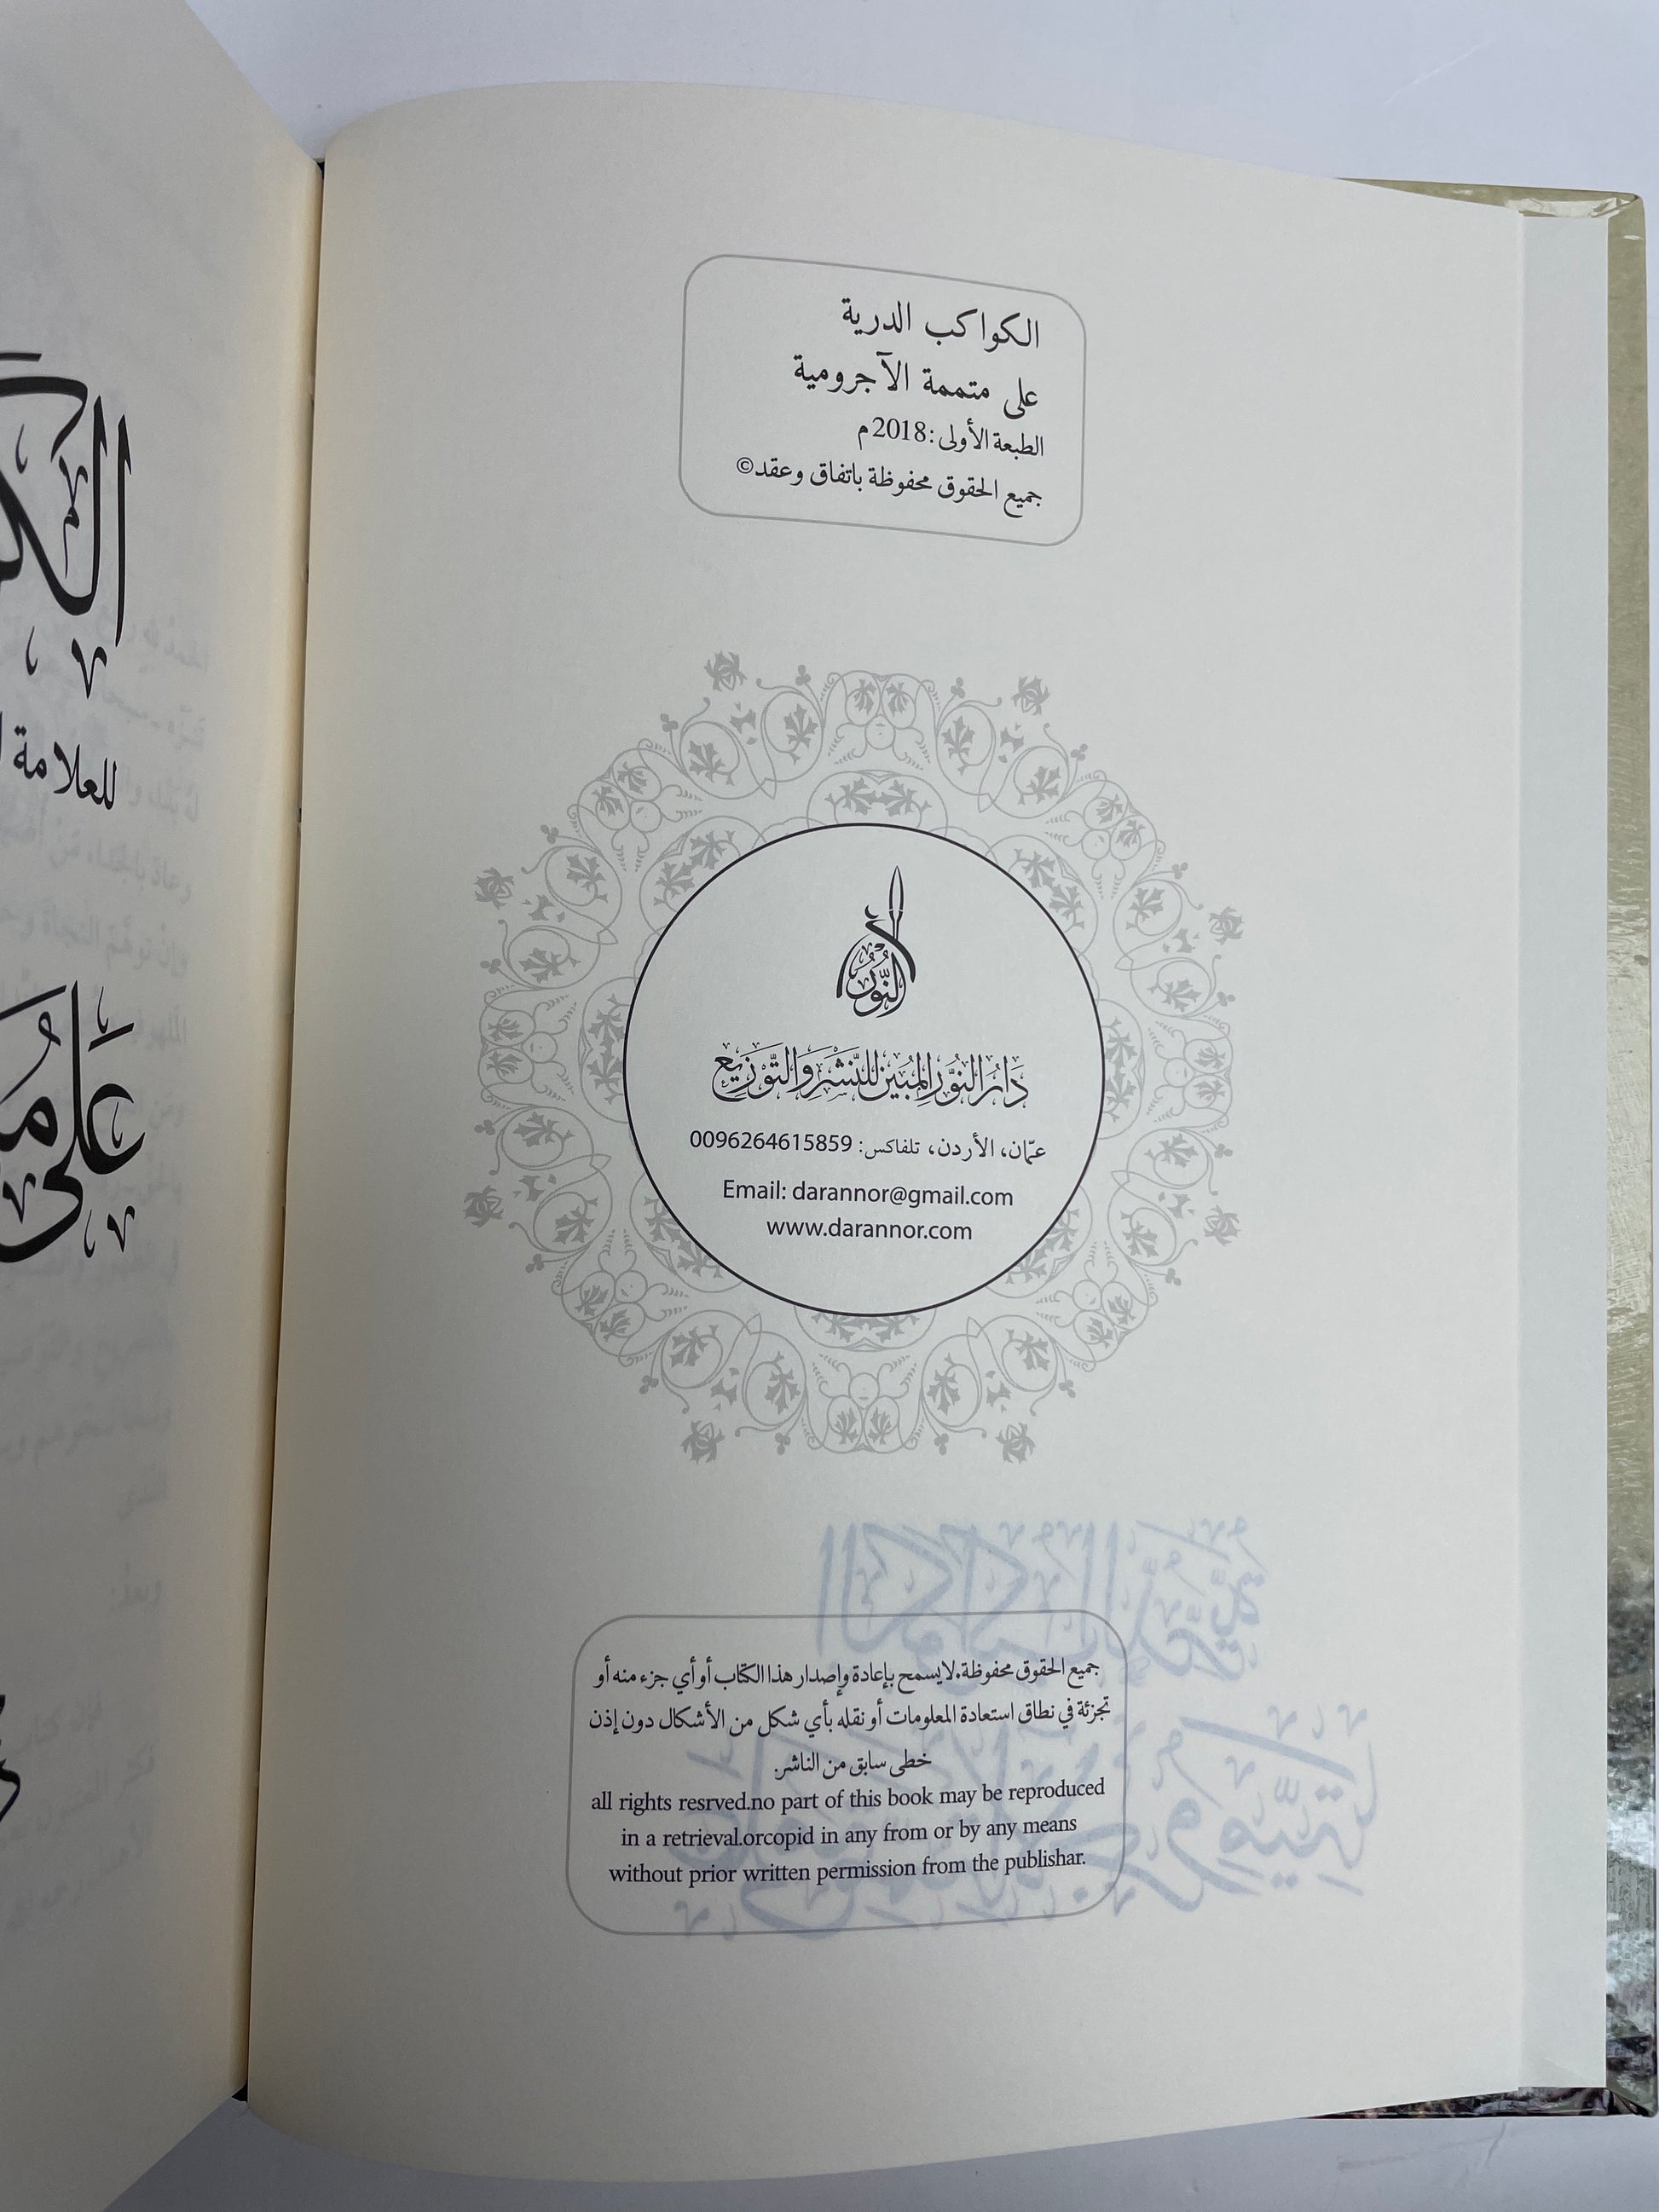 الكواكب الدرية
على متممة الآجرومية
الطبعة الأولى: 2018م
جميع الحقوق محفوظة باتفاق وعقد©
النُّور
دَارُ النُّور المُبَين للنَّشْرِ وَالتَّوْزِيع
عمّان، الأردن، تلفاكس: 0096264615859
Email: darannor@gmail.com
www.darannor.com
جميع الحقوق محفوظة.لايسمح بإعادة وإصدار هذا الكتاب أو أي جزء منه أو
تجزئة في نطاق استعادة المعلومات أو نقله بأي شكل من الأشكال دون إذن
خطى سابق من الناشر.
all rights resrved.no part of this book may be reproduced
in a retrieval.orcopid in any from or by any means
without prior written permission from the publishar.
للعلامة
عَلَى